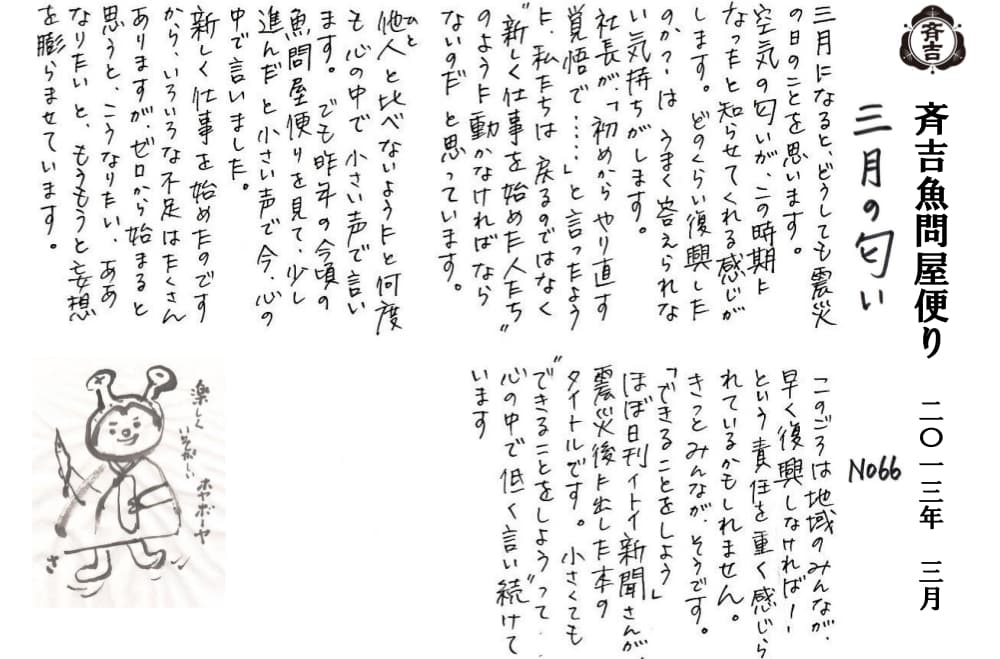 斉吉
斉吉魚問屋便り 二〇一三年 三月
三月の匂い
No66
三月になると、どうしても震災
の日のことを思います。
空気の匂いが、この時期に
なったと知らせてくれる感じが
します。どのくらい復興した
のか?は うまく答えられな
い気持ちがします。
社長が、「初めからやり直す
覚悟で……」と言ったよう
に、私たちは戻るのではなく
"新しく仕事を始めた人たち"
のように動かなければなら
ないのだ と思っています。
他人と比べないようにと何度
ひと
も心の中で小さい声で言い
ます。でも昨年の今頃の
魚問屋便りを見て、少し
進んだと小さい声で今、心の
中で言いました。
新しく仕事を始めたのです
から、いろいろな不足はたくさん
ありますが、ゼロから始まると
思うと、こうなりたい、ああ
なりたい と、もうもうと妄想
を膨らませています。
このごろは地域のみんなが、
早く復興しなければ!!
という責任を重く感じら
れているかもしれません。
きっとみんなが、そうです。
「できることをしよう」
ほぼ日刊イトイ新聞さんが、
震災後に出した本の
タイトルです。小さくても
"できることをしようって‥"
心の中で低く言い続けて
います
楽しく
いそがしい
ホヤボーヤ
さ